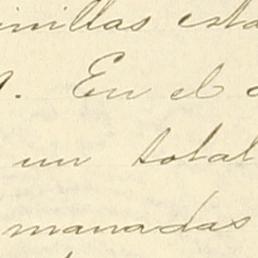 inillas esta
. En el
un total
manadas